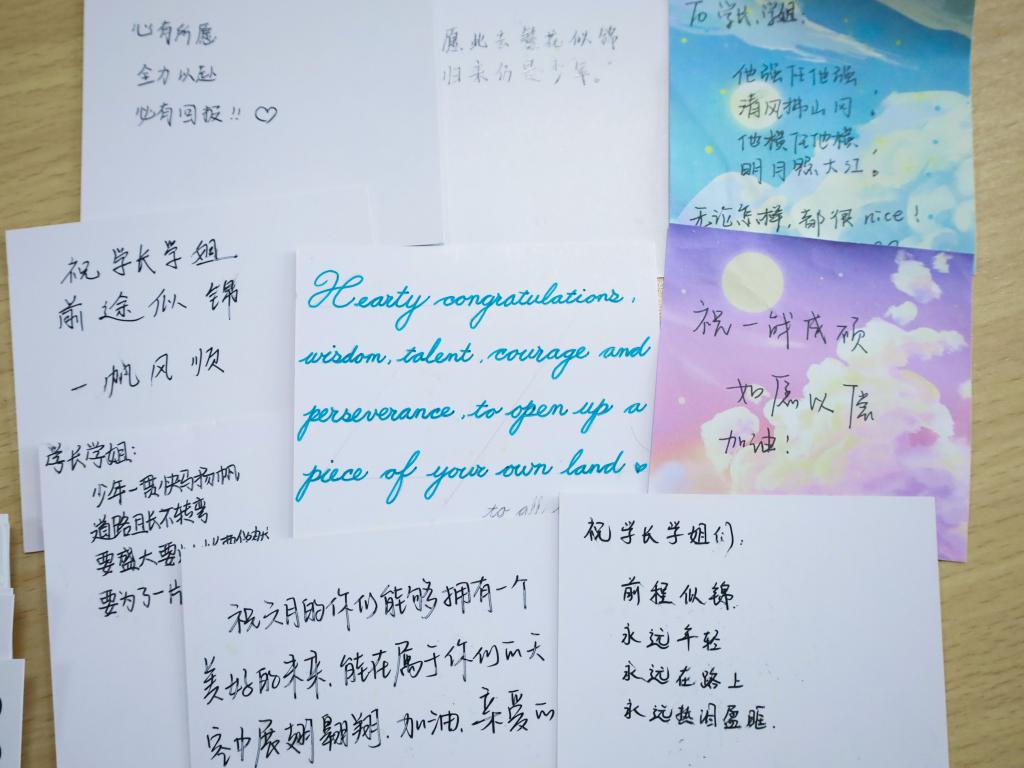 心有所愿
全力以赴
必有回报!! ♡
愿此去繁花似锦
归来仍是少年。
To 学长.学姐:
他强任他强
清风拂山冈;
他横任他横,
明月照大江。
无论怎样,都很nice!
祝 学长学姐
前途似锦
一帆风顺
Hearty congratulations,
wisdom, talent, courage and
perseverance, to open up a
piece of your own land ♥
to all
祝一战成硕
如愿以偿
加油!
学长学姐:
少年一贯快马扬帆
道路且长不转弯
要盛大要
要为了一片
祝六月的你们能够拥有一个
美好的未来,能在属于你们的天
空中展翅翱翔.加油,亲爱的
祝学长学姐们:
前程似锦
永远年轻
永远在路上
永远热泪盈眶.